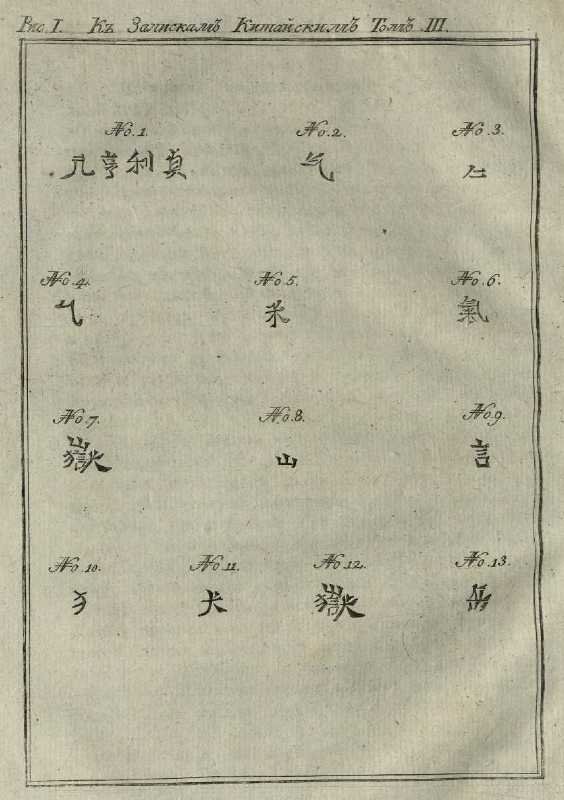 Рис. I. Къ Запискамъ Китайскимъ Томъ III.
No. 1. No. 2. No. 3.
元亨利貞 气
No. 4. No. 5. No. 6.
米 氣
No. 7. No. 8. No. 9.
嶽 山 言
No. 10. No. 11. No. 12. No. 13.
犭 犬 嶽